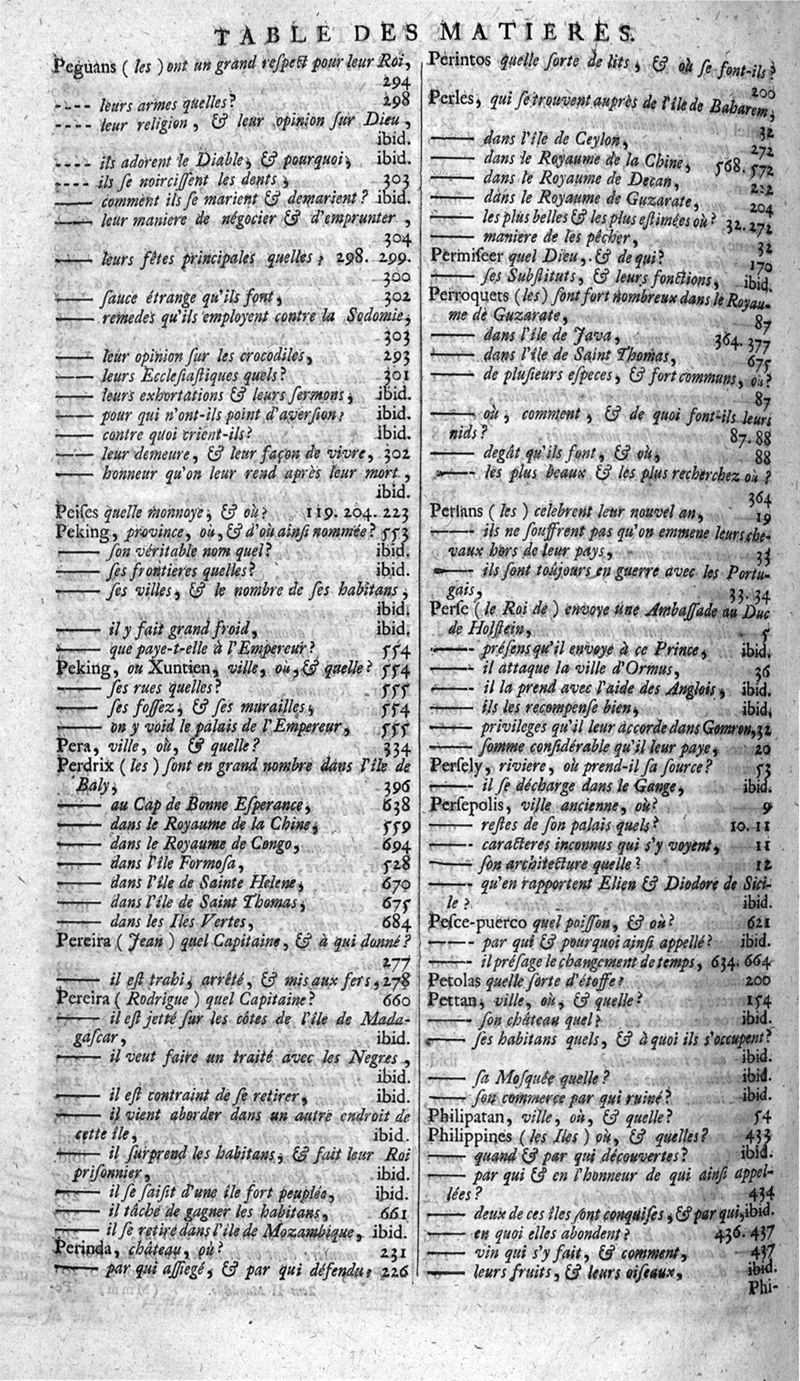 TABLE DES MATIERES.
Peguans (les) ont un grand reſpect pour leur Roi,
294
---- leurs armes quelles? 298
---- leur religion, & leur opinion ſur Dieu,
ibid.
---- ils adorent le Diable, & pourquoi, ibid.
---- ils ſe noirciſſent les dents, 303
—— comment ils ſe marient & demarient? ibid.
—— leur maniere de négocier & d'emprunter,
304
—— leurs fêtes principales quelles? 298. 299.
300
—— ſauce étrange qu'ils font, 302
—— remedes qu'ils employent contre la Sodomie,
303
—— leur opinion ſur les crocodiles, 293
—— leurs Eccleſiaſtiques quels? 301
—— leurs exhortations & leurs ſermons, ibid.
—— pour qui n'ont-ils point d'averſion? ibid.
—— contre quoi crient-ils? ibid.
—— leur demeure, & leur façon de vivre, 302
—— honneur qu'on leur rend après leur mort,
ibid.
Peiſes quelle monnoye, & où? 119. 204. 223
Peking, province, où, & d'où ainſi nommée? 553
—— ſon véritable nom quel? ibid.
—— ſes frontieres quelles? ibid.
—— ſes villes, & le nombre de ſes habitans,
ibid.
—— il y fait grand froid, ibid.
—— que paye-t-elle à l'Empereur? 554
Peking, ou Xuntien, ville, où, & quelle? 554
—— ſes rues quelles? 555
—— ſes foſſez, & ſes murailles, 554
—— on y void le palais de l'Empereur, 555
Pera, ville, où, & quelle? 334
Perdrix (les) ſont en grand nombre dans l'île de
Baly, 396
—— au Cap de Bonne Eſperance, 638
—— dans le Royaume de la Chine, 559
—— dans le Royaume de Congo, 694
—— dans l'île Formoſa, 528
—— dans l'île de Sainte Helene, 670
—— dans l'île de Saint Thomas, 675
—— dans les Iles Vertes, 684
Pereira (Jean) quel Capitaine, & à qui donné?
277
—— il eſt trahi, arrêté, & mis aux fers, 278
Pereira (Rodrigue) quel Capitaine? 660
—— il eſt jetté ſur les côtes de l'île de Mada-
gaſcar, ibid.
—— il veut faire un traité avec les Negres,
ibid.
—— il eſt contraint de ſe retirer, ibid.
—— il vient aborder dans un autre endroit de
cette île, ibid.
—— il ſurprend les habitans, & fait leur Roi
priſonnier, ibid.
—— il ſe ſaiſit d'une île fort peuplée, ibid.
—— il tâche de gagner les habitans, 661
—— il ſe retire dans l'île de Mozambique, ibid.
Perinda, château, où? 231
—— par qui aſſiegé, & par qui défendu? 226
Perintos quelle ſorte de lits, & où ſe font-ils?
200
Perles, qui ſe trouvent auprès de l'île de Baharem,
32
—— dans l'île de Ceylon, 272
—— dans le Royaume de la Chine, 568. 572
—— dans le Royaume de Decan, 222
—— dans le Royaume de Guzarate, 204
—— les plus belles & les plus eſtimées où? 32. 272
—— maniere de les pêcher, 32
Permiſeer quel Dieu, & de qui? 170
—— ſes Subſtituts, & leurs fonctions, ibid.
Perroquets (les) ſont fort nombreux dans le Royau-
me de Guzarate, 87
—— dans l'île de Java, 364. 377
—— dans l'île de Saint Thomas, 675
—— de pluſieurs eſpeces, & fort communs, où?
87
—— où, comment, & de quoi font-ils leurs
nids? 87. 88
—— degât qu'ils font, & où, 88
—— les plus beaux & les plus recherchez où?
364
Perſans (les) celebrent leur nouvel an, 19
—— ils ne ſouffrent pas qu'on emmene leurs che-
vaux hors de leur pays, 33
—— ils ſont toûjours en guerre avec les Portu-
gais, 33. 34
Perſe (le Roi de) envoye une Ambaſſade au Duc
de Holſtein, 5
—— préſens qu'il envoye à ce Prince, ibid.
—— il attaque la ville d'Ormus, 36
—— il la prend avec l'aide des Anglois, ibid.
—— ils les recompenſe bien, ibid.
—— privileges qu'il leur accorde dans Gomron, 32
—— ſomme conſidérable qu'il leur paye, 20
Perſely, riviere, où prend-il ſa ſource? 53
—— il ſe décharge dans le Gange, ibid.
Perſepolis, ville ancienne, où? 9
—— reſtes de ſon palais quels? 10. 11
—— caracteres inconnus qui s'y voyent, 11
—— ſon architecture quelle? 12
—— qu'en rapportent Elien & Diodore de Sici-
le? ibid.
Peſce-puerco quel poiſſon, & où? 621
—— par qui & pourquoi ainſi appellé? ibid.
—— il préſage le changement de temps, 634. 664
Petolas quelle ſorte d'étoffe? 200
Pettan, ville, où, & quelle? 154
—— ſon château quel? ibid.
—— ſes habitans quels, & à quoi ils s'occupent?
ibid.
—— ſa Moſquée quelle? ibid.
—— ſon commerce par qui ruiné? ibid.
Philipatan, ville, où, & quelle? 54
Philippines (les Iles) où, & quelles? 433
—— quand & par qui découvertes? ibid.
—— par qui & en l'honneur de qui ainſi appel-
lées? 434
—— deux de ces îles ſont conquiſes, & par qui, ibid.
—— en quoi elles abondent? 436. 437
—— vin qui s'y fait, & comment, 437
—— leurs fruits, & leurs oiſeaux, ibid.
Phi-